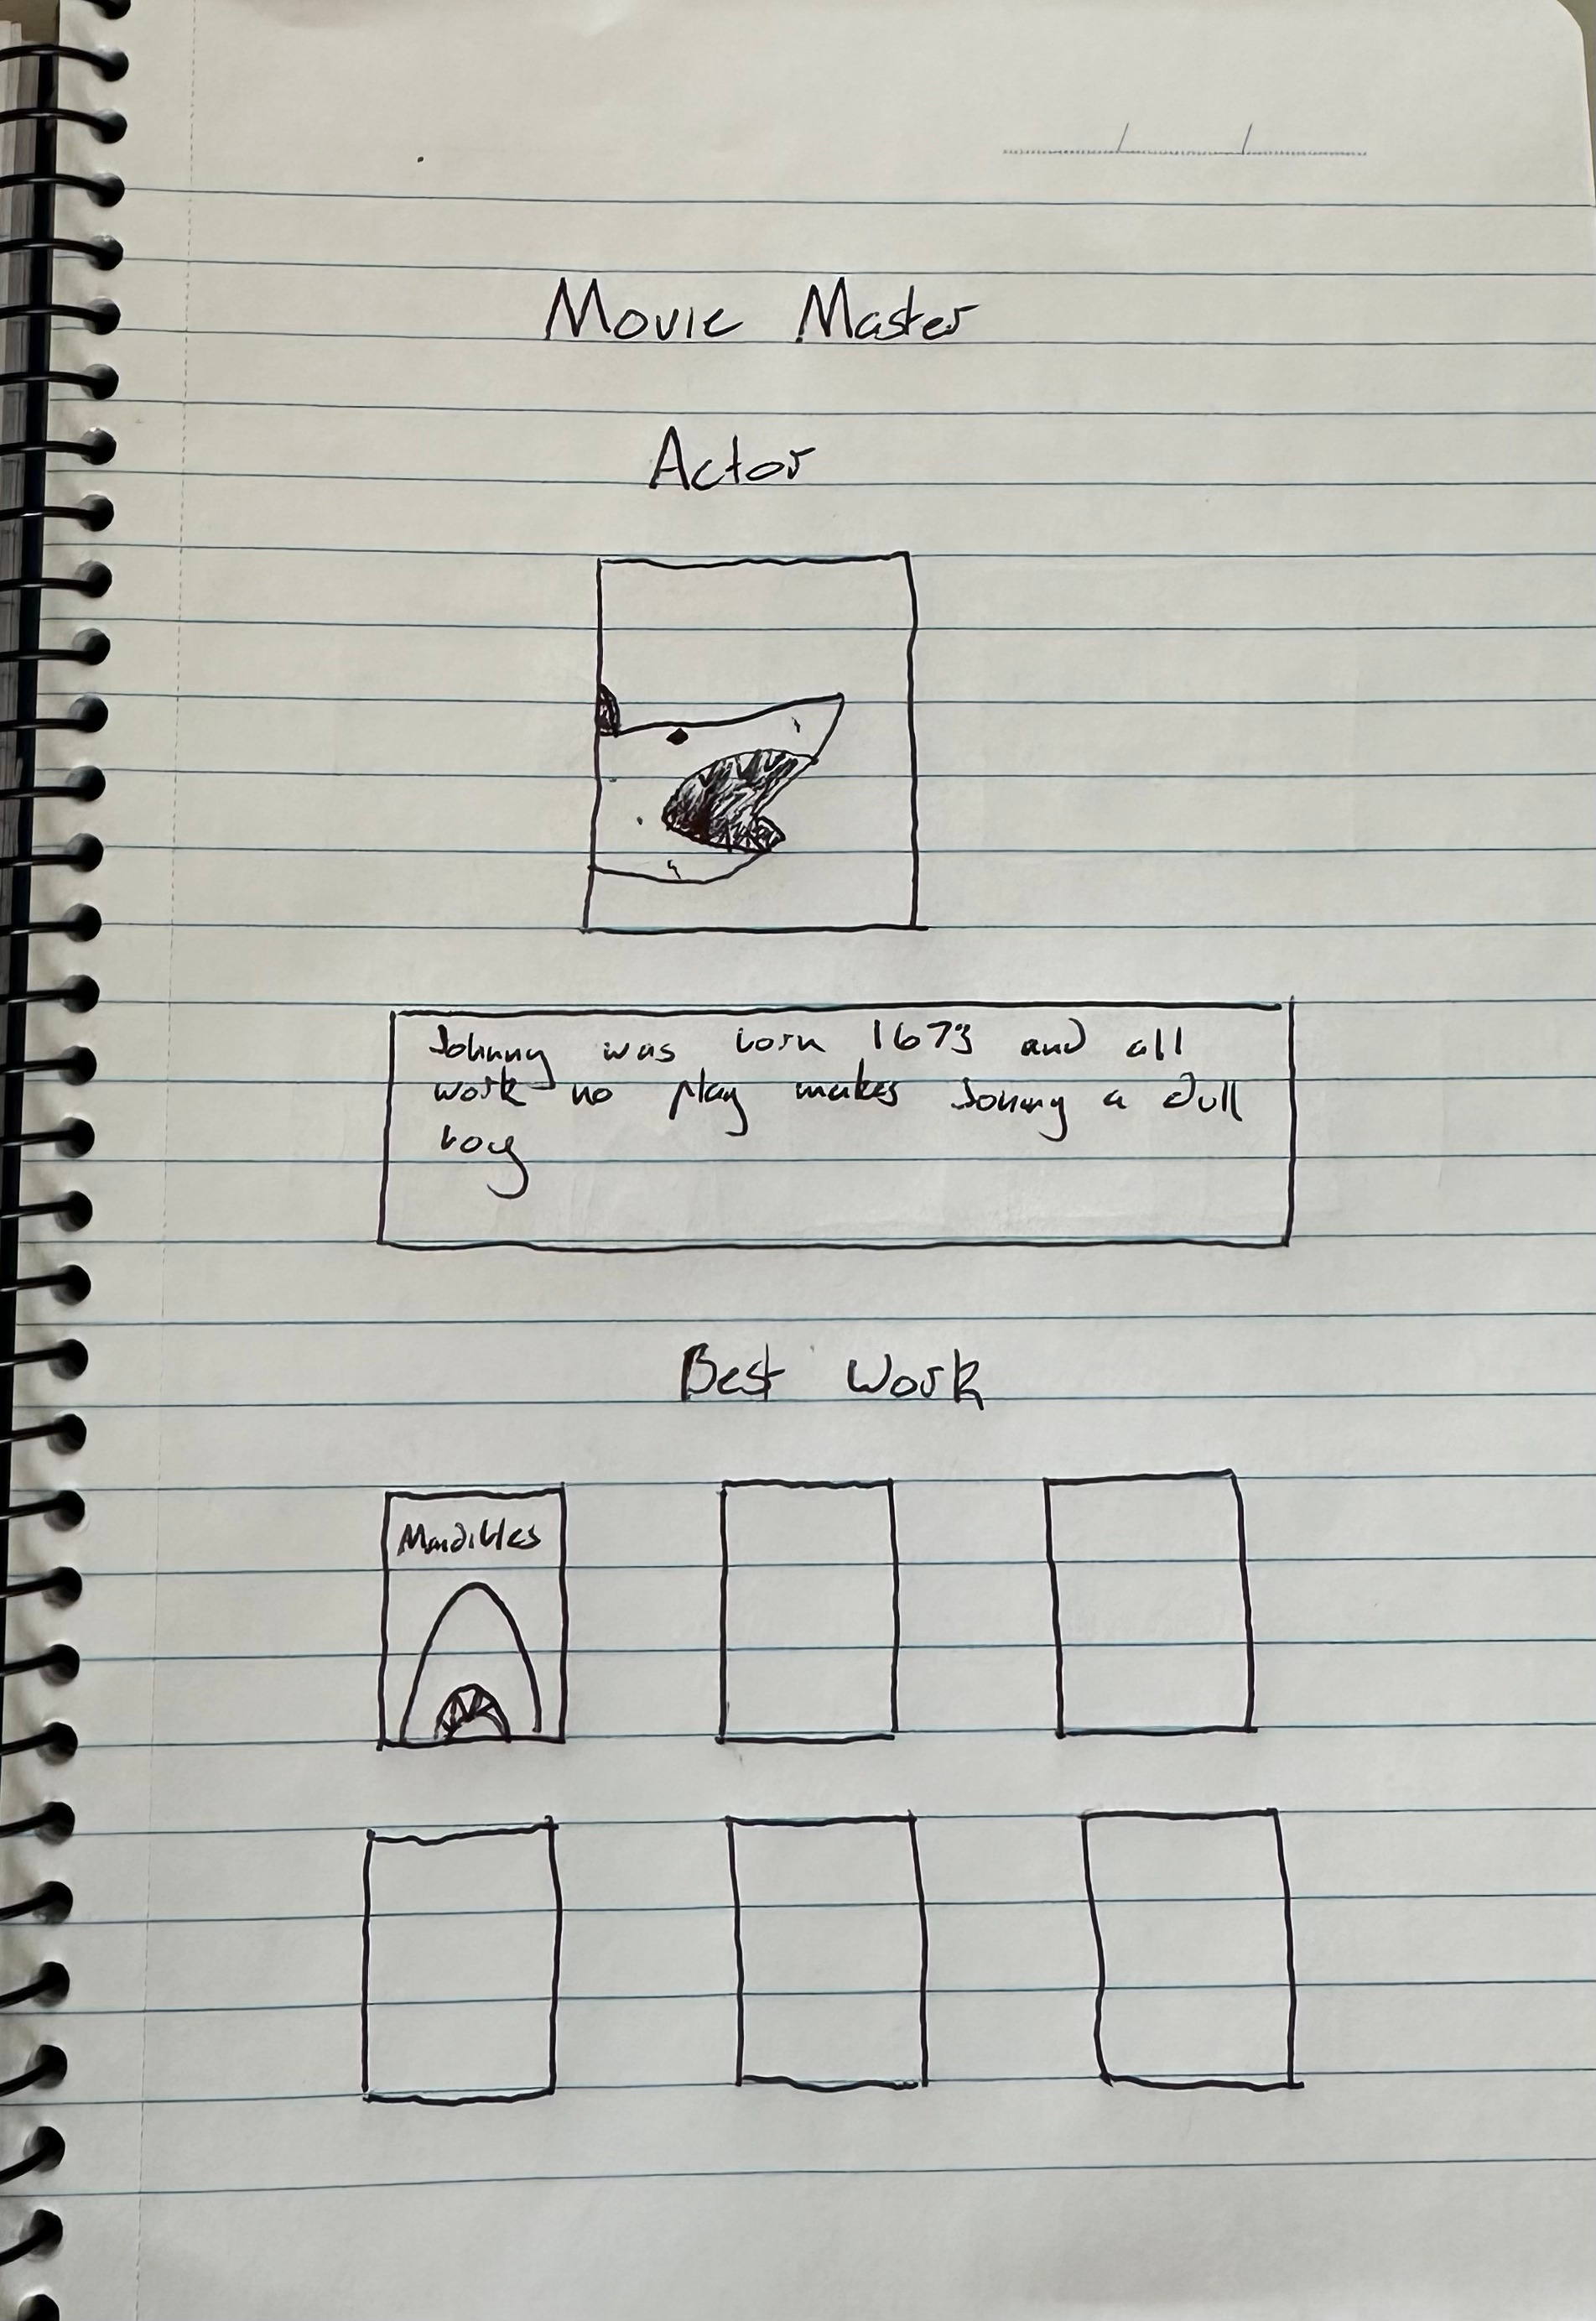 Movie Master
Actor
Johnny was born 1673 and all
work no play makes Johnny a dull
boy
Best Work
Mandibles